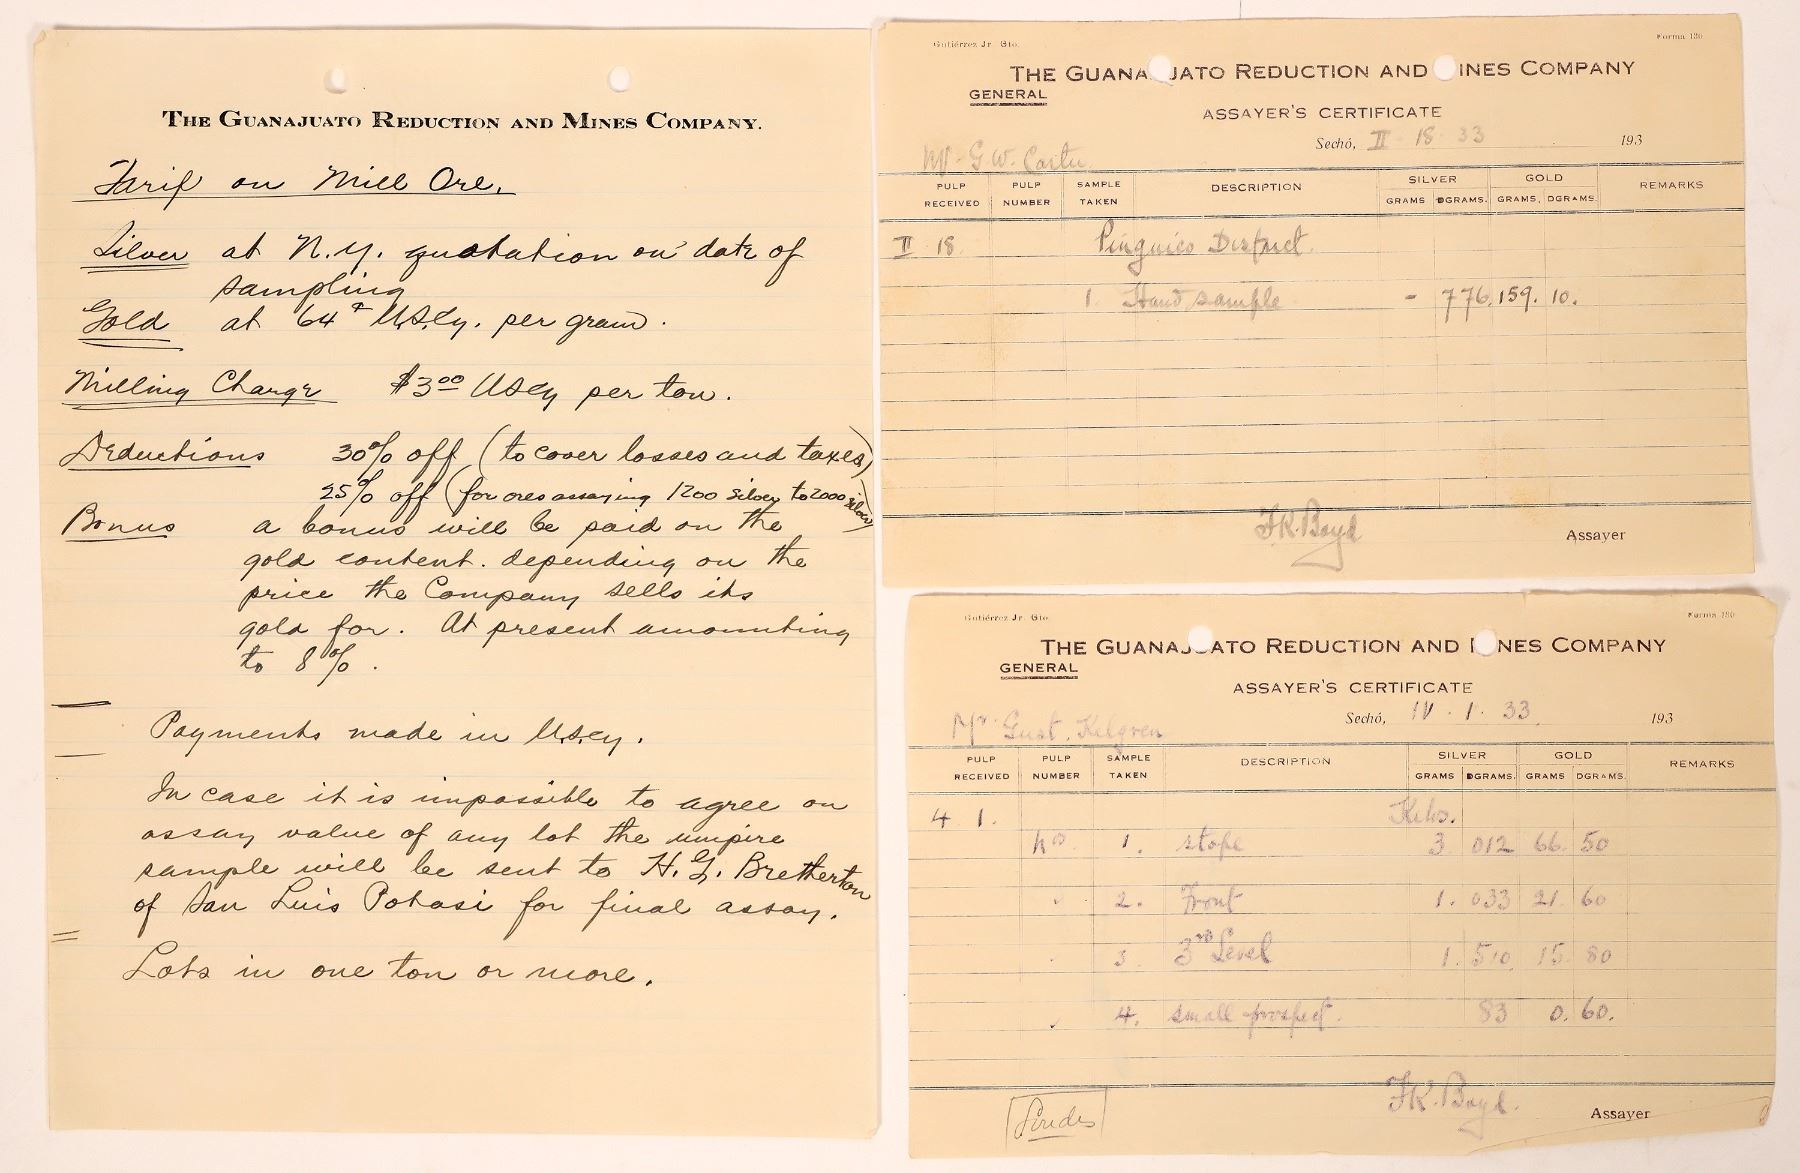 THE GUANAJUATO REDUCTION AND MINES COMPANY.
Tarif on Mill Ore.
Silver at N.Y. quotation on date of
sampling
Gold at 64¢ U.S.Cy. per gram.
Milling Charge $3.00 USCy per ton.
Deductions 30% off (to cover losses and taxes)
25% off (for ores assaying 1200 silver to 2000 silver)
Bonus a bonus will be paid on the
gold content. depending on the
price the Company sells its
gold for. At present amounting
to 8%.
Payments made in U.S.Cy.
In case it is impossible to agree on
assay value of any lot the umpire
sample will be sent to H.G. Bretherton
of San Luis Potosi for final assay.
Lots in one ton or more.
Gutiérrez Jr. Gto. Forma 130
THE GUANA JUATO REDUCTION AND INES COMPANY
GENERAL
ASSAYER'S CERTIFICATE
Sechó, II - 18 - 33 193
Mr. G.W. Carter
PULP RECEIVED PULP NUMBER SAMPLE TAKEN DESCRIPTION SILVER GRAMS DGRAMS. GOLD GRAMS. DGRAMS. REMARKS
II 18. Pinguico District.
1. Hand sample - 776. 159. 10.
F.K. Boyd Assayer
Gutiérrez Jr. Gto. Forma 130
THE GUANAJUATO REDUCTION AND MINES COMPANY
GENERAL
ASSAYER'S CERTIFICATE
Sechó, IV. 1. 33. 193
Mr. Gust. Kelgren
PULP RECEIVED PULP NUMBER SAMPLE TAKEN DESCRIPTION SILVER GRAMS DGRAMS. GOLD GRAMS DGRAMS. REMARKS
4 1. Kilos.
No. 1. stope 3. 012 66. 50
2. Front 1. 033 21. 60
3. 3rd Level 1. 510 15. 80
4. small prospect. 83 0. 60.
F.K. Boyd. Assayer